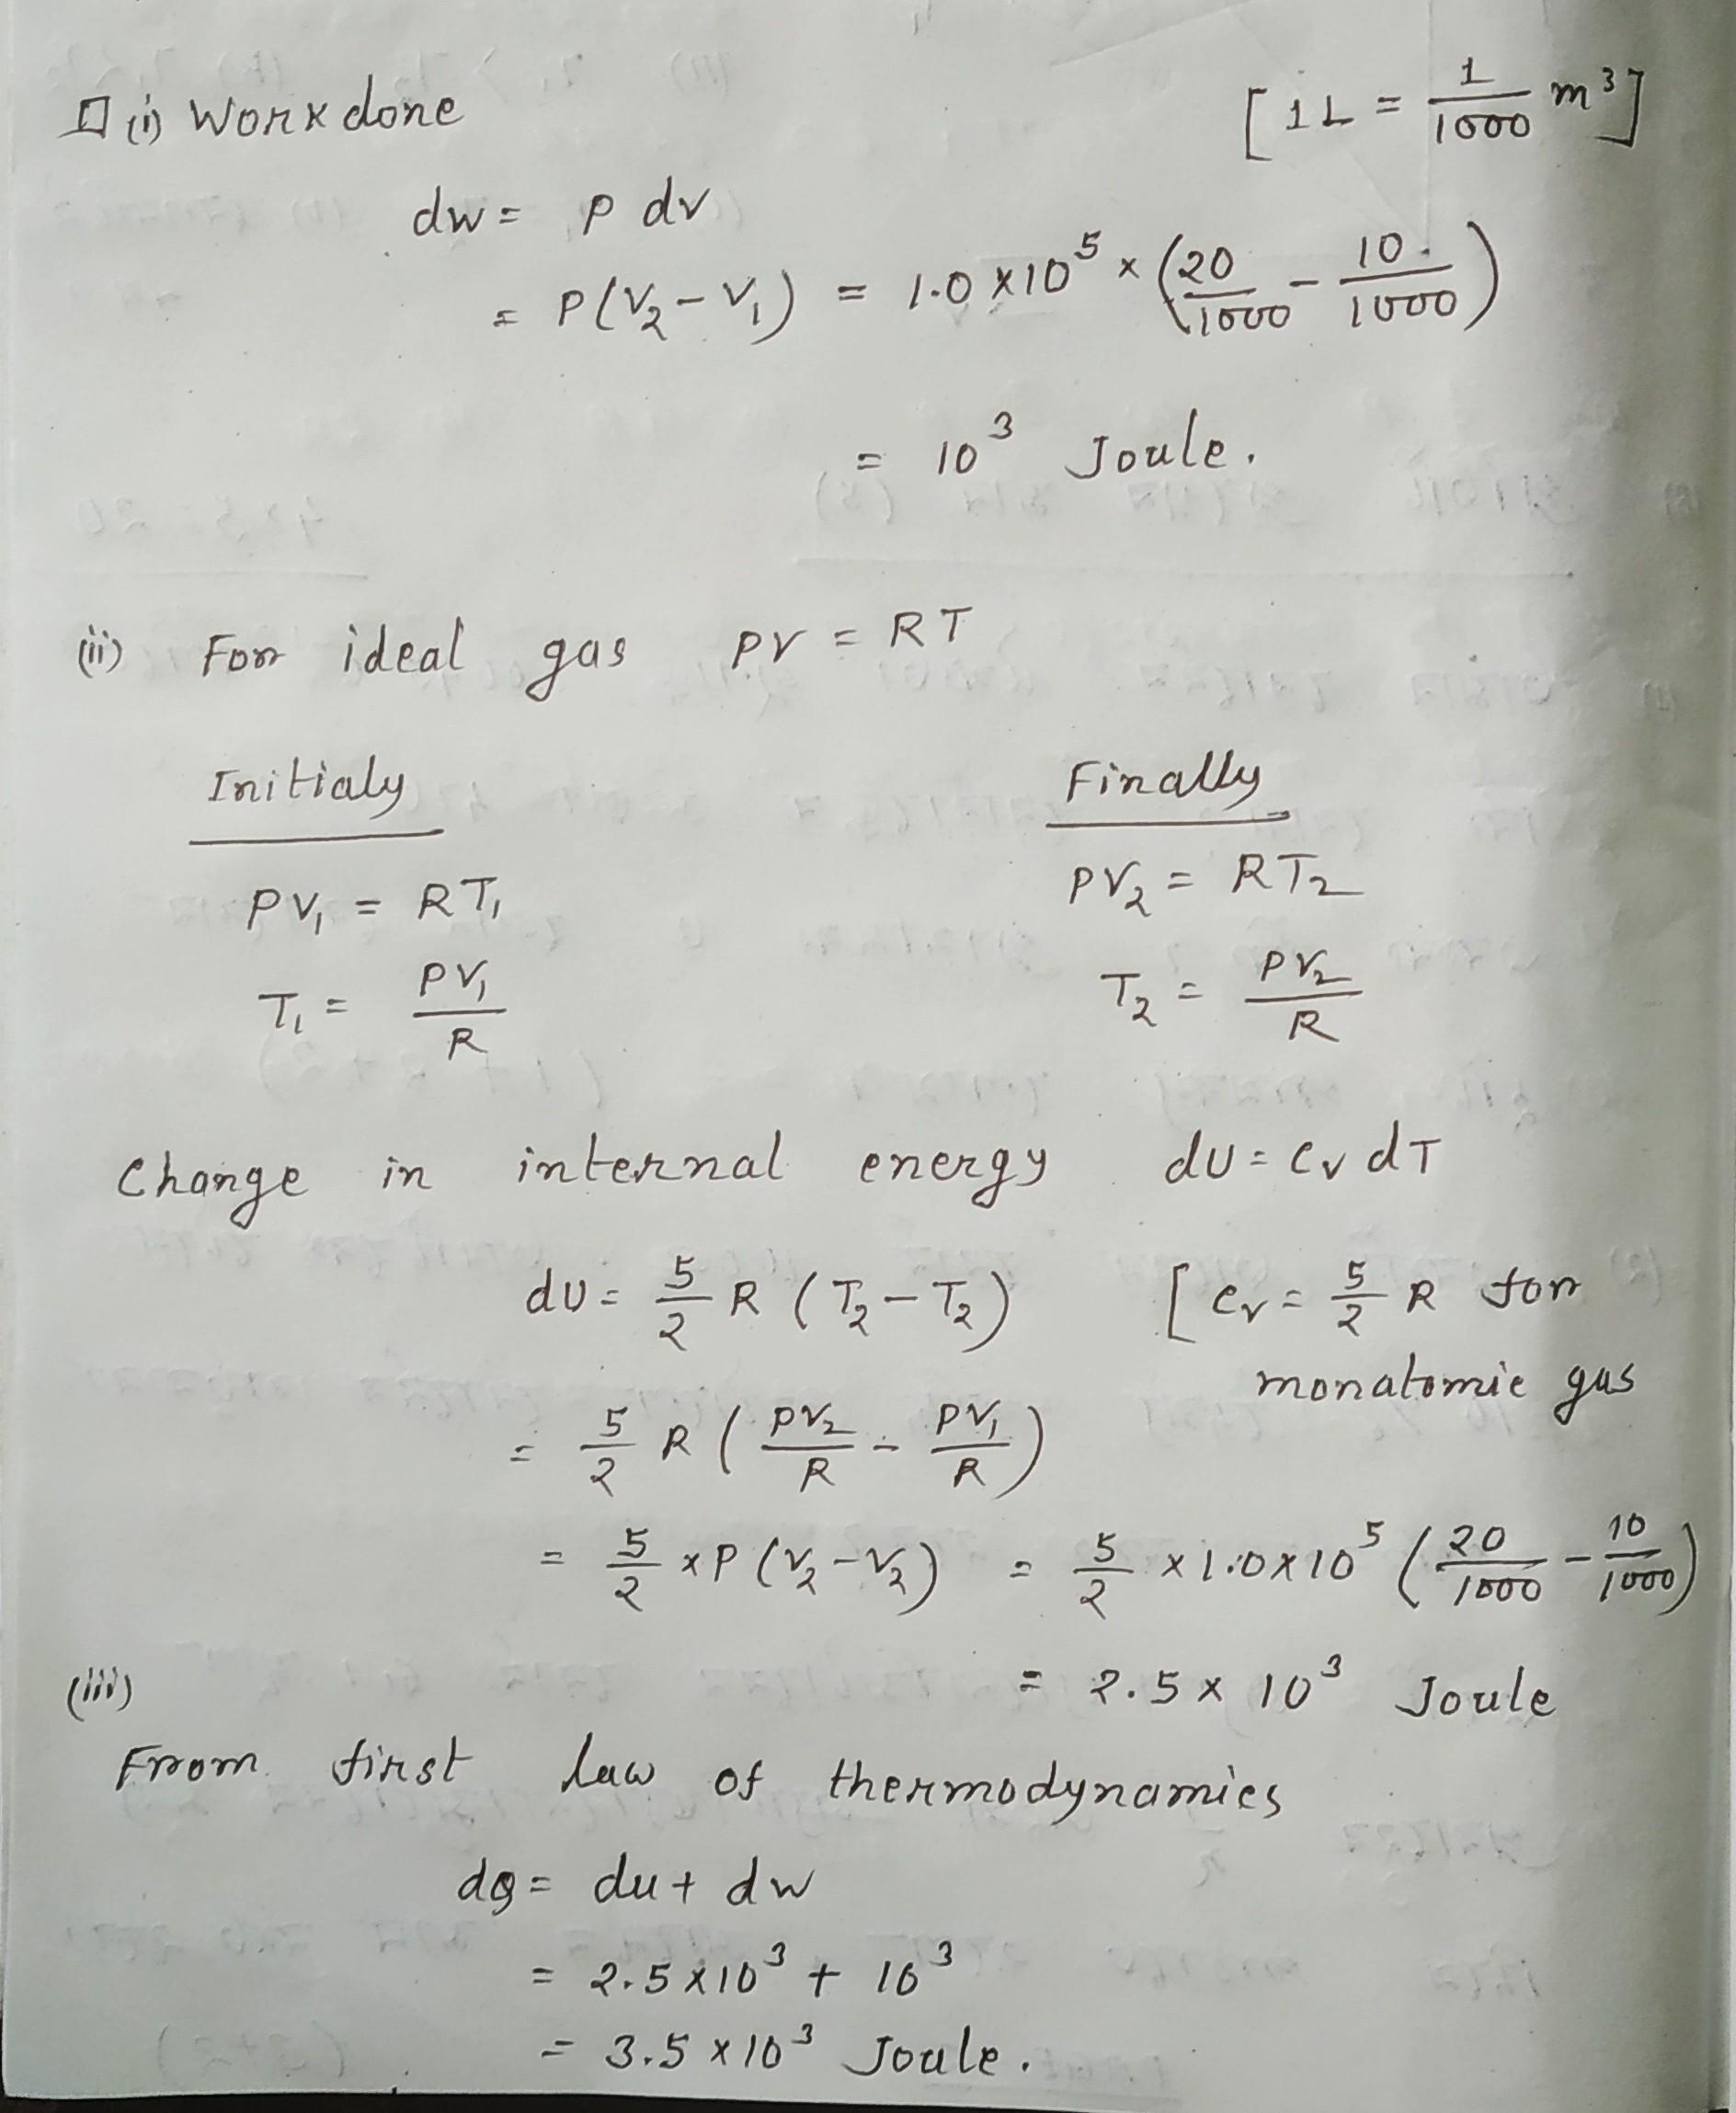 (i) Work done [1L = 1/1000 m³]
dw = P dv
= P(V₂ - V₁) = 1.0 × 10⁵ × (20/1000 - 10/1000)
= 10³ Joule.
(ii) For ideal gas PV = RT
Initialy Finally
PV₁ = RT₁ PV₂ = RT₂
T₁ = PV₁/R T₂ = PV₂/R
Change in internal energy dU = Cv dT
dU = 5/2 R (T₂ - T₂) [Cv = 5/2 R for
monatomic gas
= 5/2 R (PV₂/R - PV₁/R)
= 5/2 × P (V₂ - V₂) = 5/2 × 1.0 × 10⁵ (20/1000 - 10/1000)
= 2.5 × 10³ Joule
(iii)
From first law of thermodynamics
dQ = du + dw
= 2.5 × 10³ + 10³
= 3.5 × 10³ Joule.